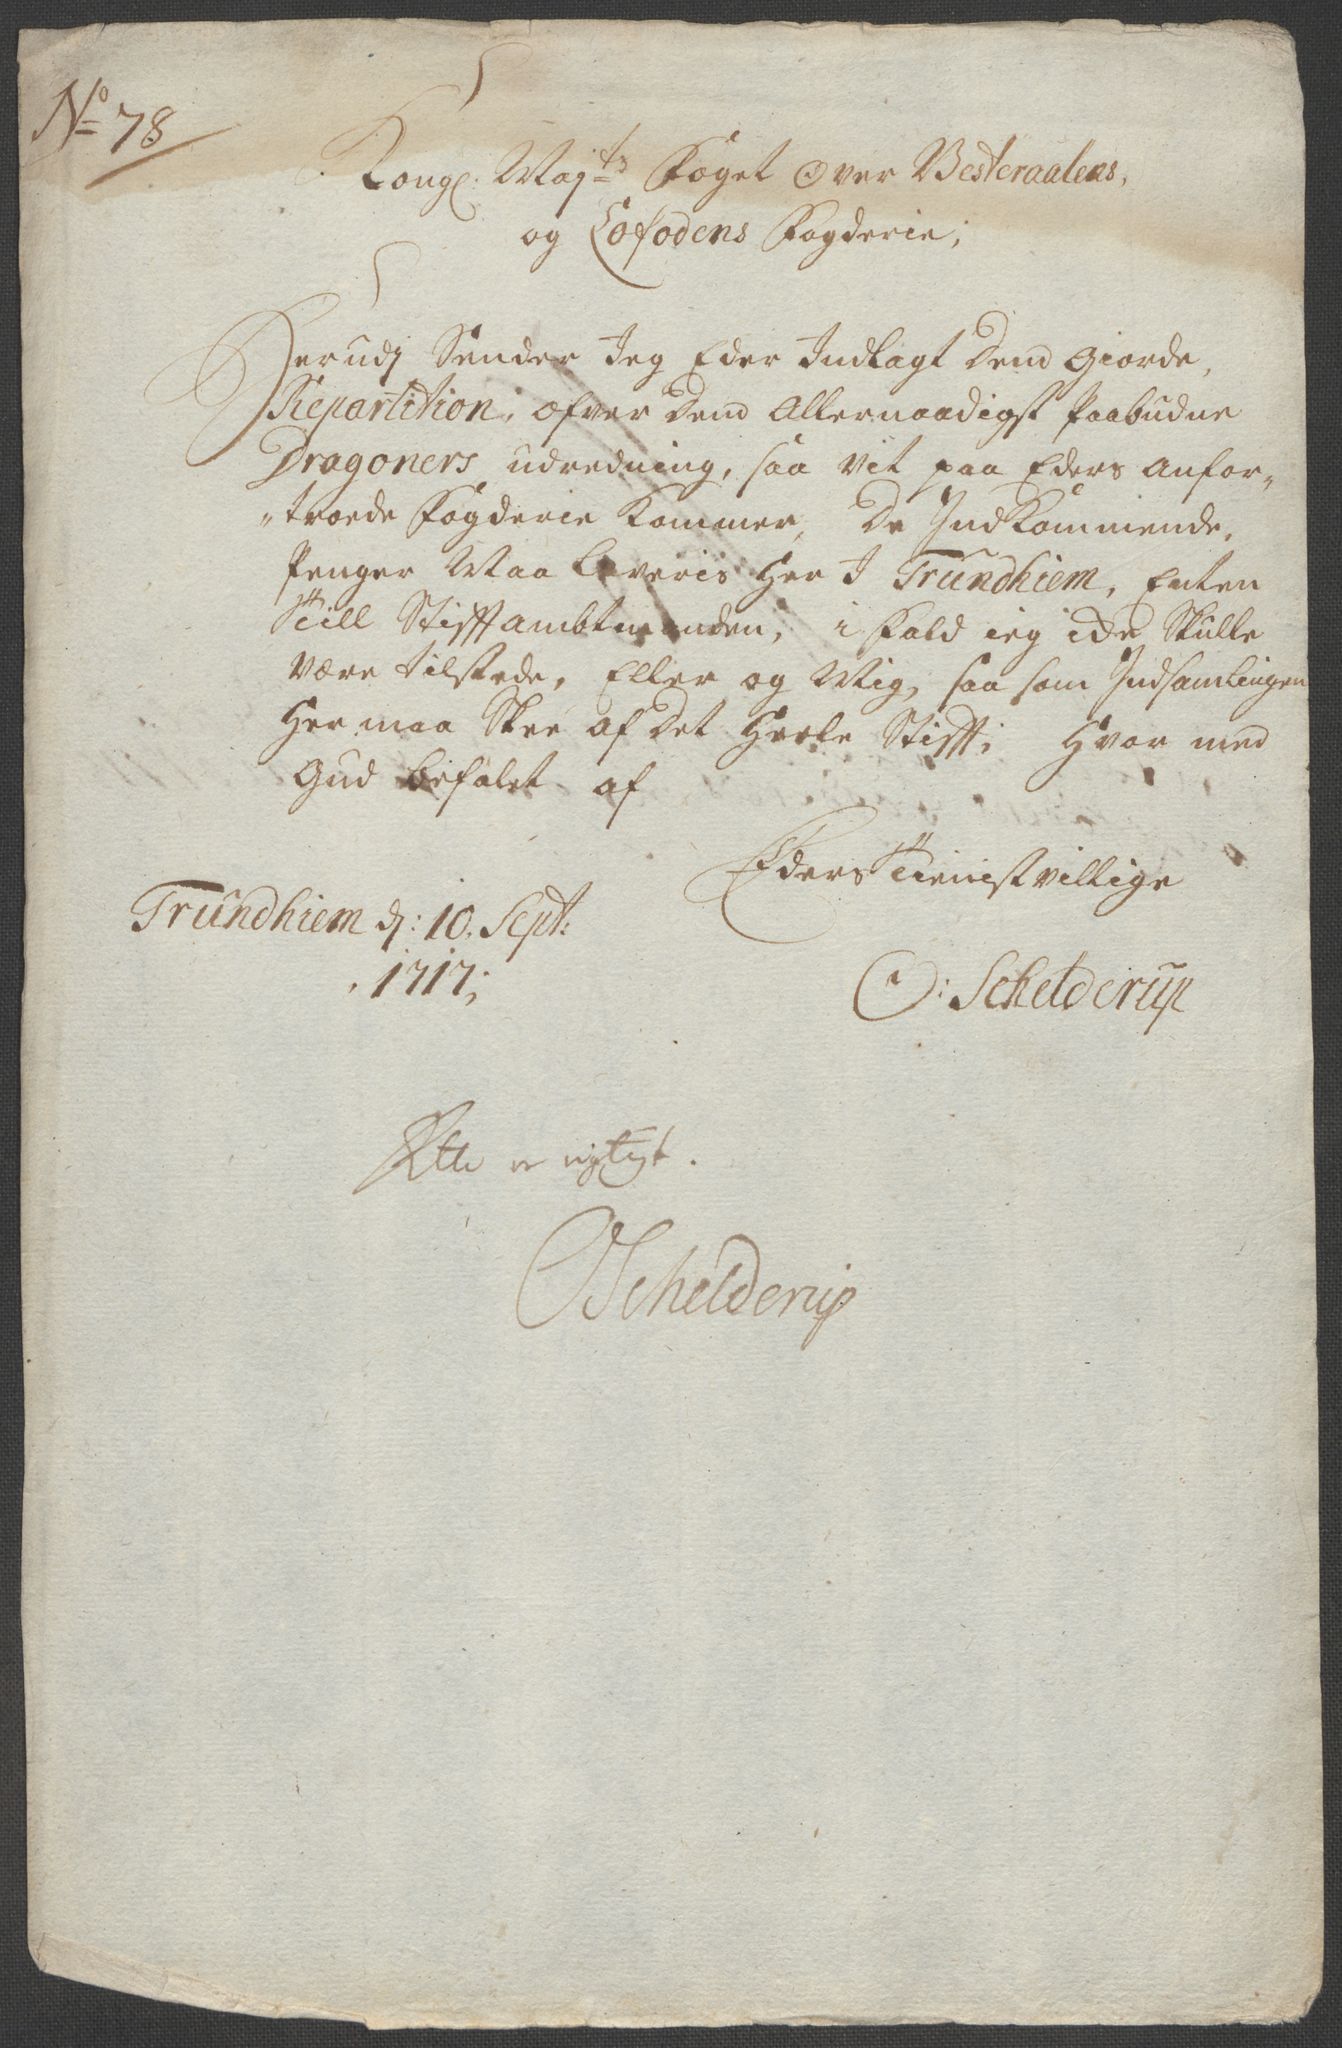 No 78
Kongl. Mayts Foget Over Westeraalens,
og Lofodens Fogderie,
Herudj Sender Jeg Eder Indlagt Dend Giorde,
Repartition, ofver Dend Allernaadigst Paabudne
Dragoners udredning, saa vit paa Eders anfor-
-troede Fogderie Kommer, De Indkommende,
Penger Maa Leveris Her I Trundhiem, Enten
till Stifftambtmanden, i fald ieg icke Skulle
være tilstede, Eller og Mig, saa som Indsamlingen
Her maa Skee af Det Heele Stifft; Hvor med
Gud befalet af
Eders tienistvillige
Trundhiem d: 10. Sept:
1717;
O: Schelderup
Rett er rigtigt.
OSchelderup